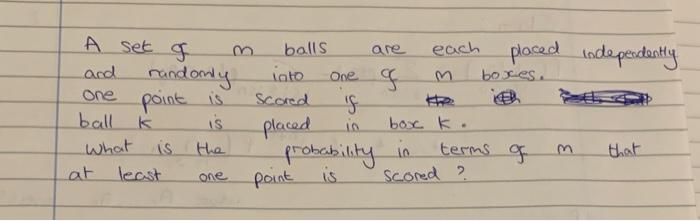 A set of m balls are each placed independently
and randomly into one of m boxes.
one point is scored if
ball k is placed in box k.
What is the probability in terms of m that
at least one point is scored?